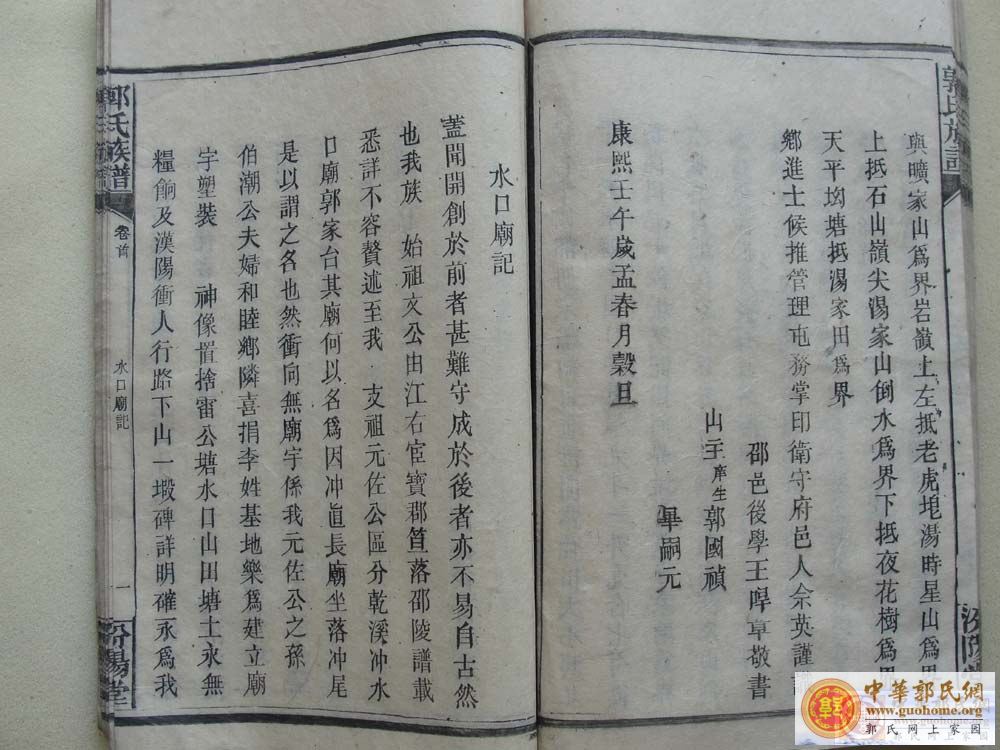 郭氏族譜
與曠家山爲界岩嶺上左抵老虎垉湯時星山爲界
上抵石山嶺尖湯家山倒水爲界下抵夜花樹爲界
天平坳塘抵湯家田爲界
鄉進士候推管理屯務掌印衛守府邑人佘英謹
邵邑後學王㷸章敬書
山主庠生郭國禎
畢嗣元
康熙壬午歲孟春月穀旦
水口廟記
蓋聞開創於前者甚難守成於後者亦不易自古然
也我族 始祖文公由江右宦寶郡笪落邵陵譜載
悉詳不容贅述至我 支祖元佐公區分乾溪冲水
口廟郭家台其廟何以名爲因冲直長廟坐落冲尾
是以謂之名也然衝向無廟宇係我元佐公之孫
伯潮公夫婦和睦鄉隣喜捐李姓基地樂爲建立廟
宇塑裝 神像置捨雷公塘水口山田塘土永無
糧餉及漢陽衝人行路下山一塅碑詳明確永爲我
郭氏族譜
卷首
水口廟記
一
汾陽堂
中華郭氏網
www.guohome.org
郭氏网上家园